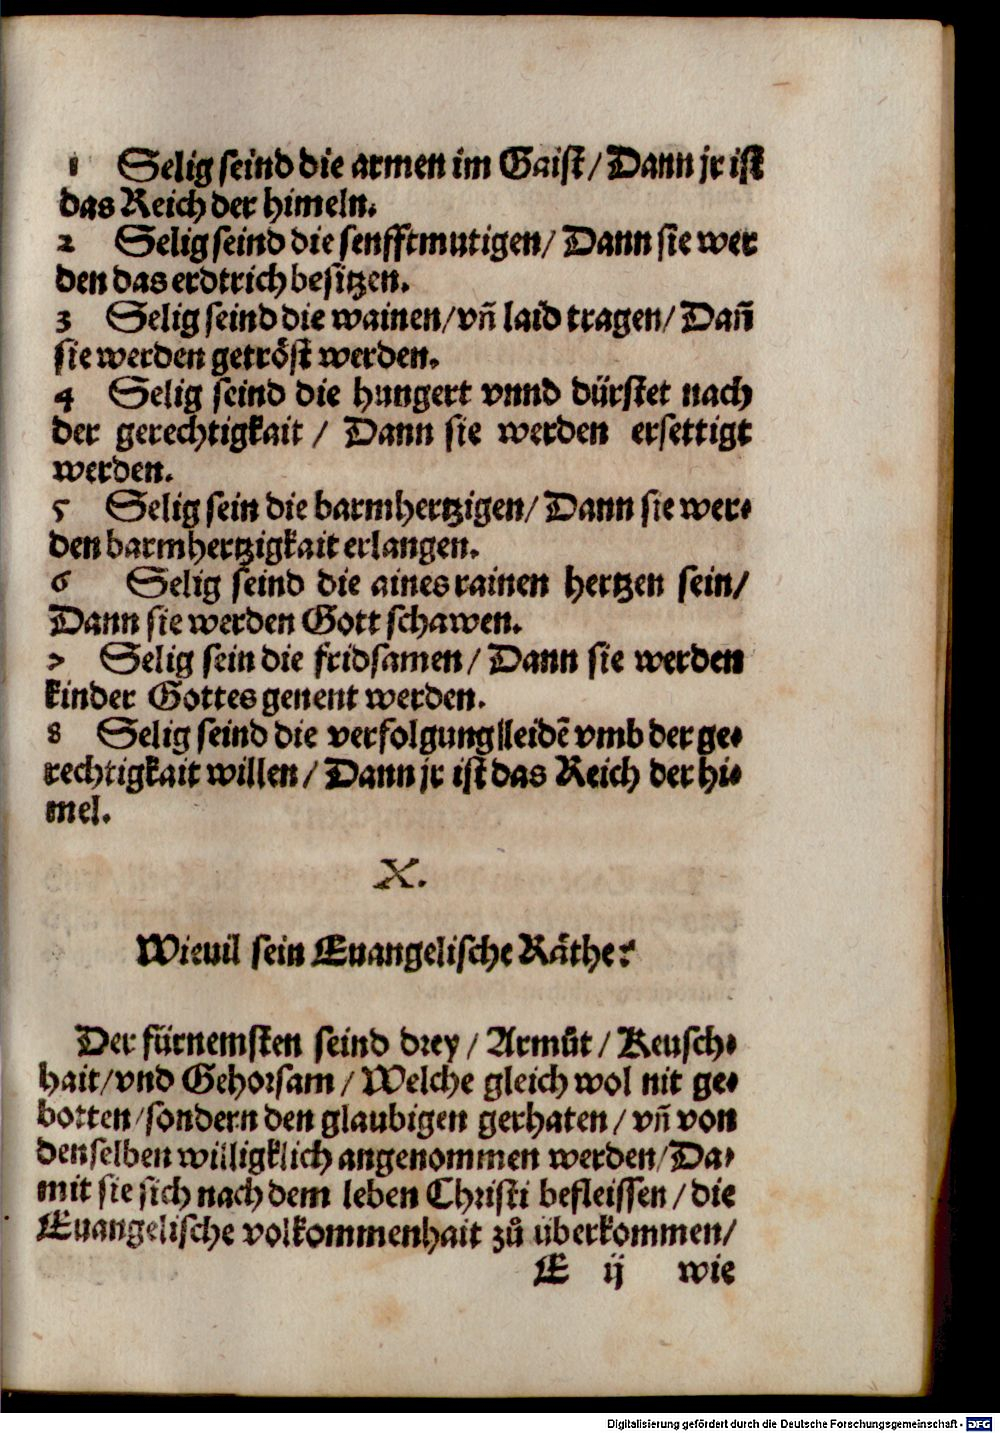 1 Selig seind die armen im Gaist / Dann jr ist
das Reich der himeln.
2 Selig seind die senfftmutigen / Dann sie wer
den das erdtrich besitzen.
3 Selig seind die wainen / vn̄ laid tragen / Dan̄
sie werden getröst werden.
4 Selig seind die hungert vnnd dürstet nach
der gerechtigkait / Dann sie werden ersettigt
werden.
5 Selig sein die barmhertzigen / Dann sie wer⸗
den barmhertzigkait erlangen.
6 Selig seind die aines rainen hertzen sein /
Dann sie werden Gott schawen.
7 Selig sein die fridsamen / Dann sie werden
kinder Gottes genent werden.
8 Selig seind die verfolgung leidē vmb der ge⸗
rechtigkait willen / Dann jr ist das Reich der hi⸗
mel.
X.
Wieuil sein Euangelische Räthe?
Der fürnemsten seind drey / Armůt / Keusch⸗
hait / vnd Gehorsam / Welche gleich wol nit ge⸗
botten / sondern den glaubigen gerhaten / vn̄ von
denselben willigklich angenommen werden / Da⸗
mit sie sich nach dem leben Christi befleissen / die
Euangelische volkommenhait zů überkommen /
E ij wie
Digitalisierung gefördert durch die Deutsche Forschungsgemeinschaft - DFG